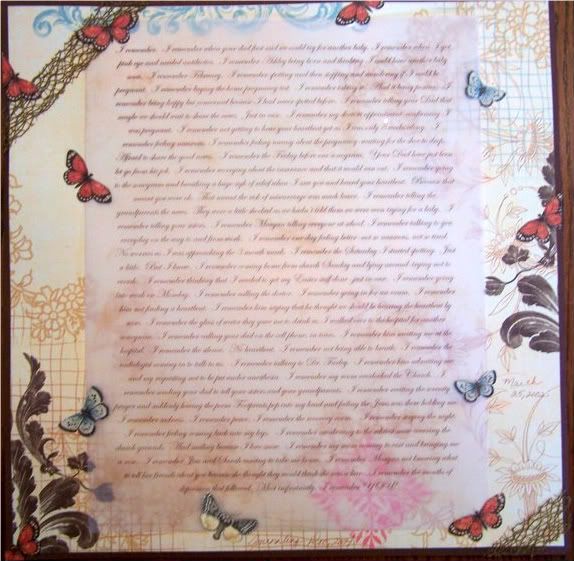 I remember. I remember when your dad first said we could try for another baby. I remember when I got
pink eye and needed antibiotics. I remember Ashley being born and thinking I could have another baby
soon. I remember February. I remember spotting and then stopping and wondering if I could be
pregnant. I remember buying the home pregnancy test. I remember taking it. And it being positive. I
remember being happy but concerned because I had never spotted before. I remember telling your Dad that
maybe we should wait to share the news. Just in case. I remember my doctors appointment confirming I
was pregnant. I remember not getting to hear your heartbeat yet as I'm only 8 weeks along. I
remember feeling nauseous. I remember feeling uneasy about the pregnancy, waiting for the shoe to drop.
Afraid to share the good news. I remember the Friday before our sonogram. Your Dad having just been
let go from his job. I remember worrying about the insurance and that it would run out. I remember going
to the sonogram and breathing a huge sigh of relief when I saw you and heard your heartbeat. Because that
meant you were ok. That meant the risk of miscarriage was much lower. I remember telling the
grandparents the news. They were a little shocked as we hadn't told them we were even trying for a baby. I
remember telling your sisters. I remember Meagan telling everyone at school. I remember talking to you
everyday on the way to and from work. I remember one day feeling better, not so nauseous, not so tired.
No worries as I was approaching the 3 month mark. I remember the Saturday I started spotting. Just
a little. But I knew. I remember coming home from church Sunday and lying around trying not to
worry. I remember thinking that I needed to get my Easter stuff done just in case. I remember going
into work on Monday. I remember calling the doctor. I remember going in for an exam. I remember
him not finding a heartbeat. I remember him saying that he thought we should be hearing the heartbeat by
now. I remember the glass of water they gave me to drink as I walked over to the hospital for another
sonogram. I remember calling your dad on the cell phone, in tears. I remember him meeting me at the
hospital. I remember the silence. No heartbeat. I remember not being able to breathe. I remember the
radiologist coming in to talk to us. I remember talking to Dr. Farley. I remember him admitting me
and my requesting not to be put under anesthesia. I remember my mom overlooked the Church. I
remember needing your dad to tell your sisters and your grandparents. I remember reciting the serenity
prayer and suddenly having the poem Footprints pop into my head and feeling the Jesus was there holding me.
I remember sadness. I remember peace. I remember the nursery room. I remember saying the night.
I remember feeling coming back into my legs. I remember wandering to the window and viewing the
church grounds. And nothing because I knew. I remember my mom coming to visit and bringing me
a rose. I remember Jim and Sandi wanting to take me home. I remember Meagan not knowing what
to tell her friends about you because she thought they would think she was a liar. I remember the months of
depression that followed. Most importantly, I remember YOU!!
March
25, 2002